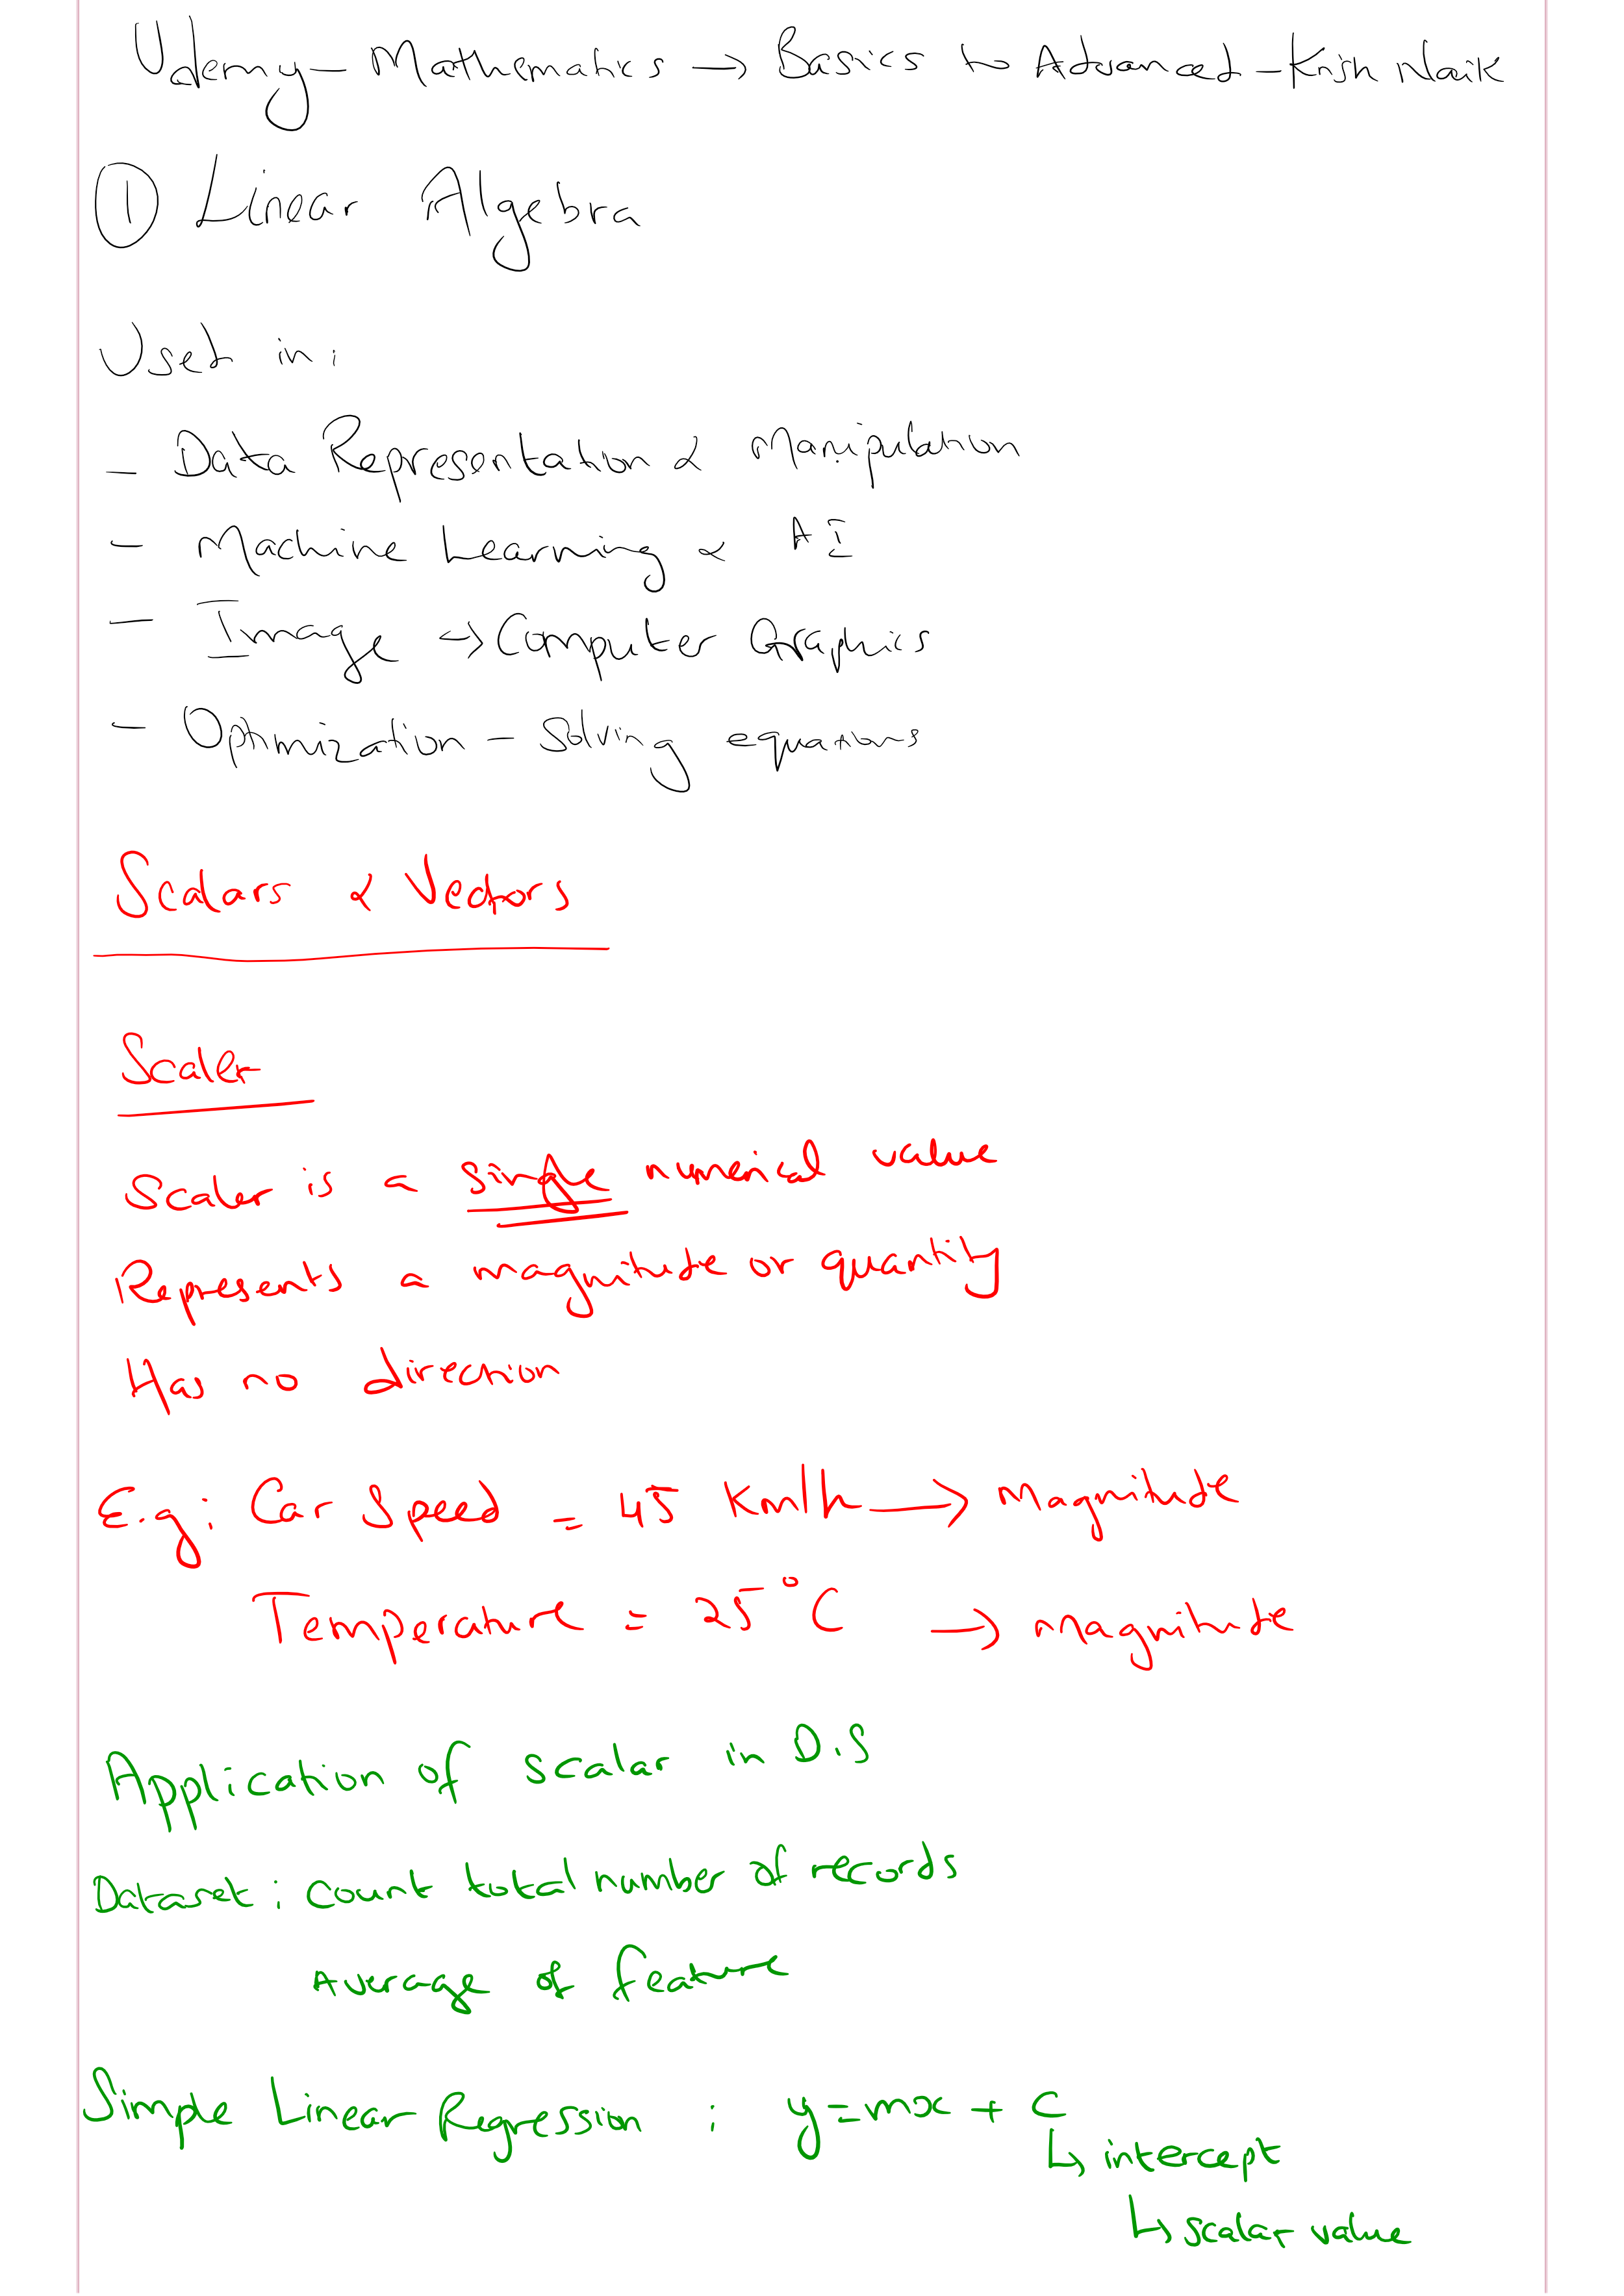 Udemy - Mathematics → Basics to Advanced - Krish Naik
① Linear Algebra
Used in:
- Data Representation & Manipulation
- Machine Learning & AI
- Image → Computer Graphics
- Optimization - Solving equations
Scalars & Vectors
Scaler
Scaler is a single numerical value
Represents a magnitude or quantity
Has no direction
E.g: Car Speed = 45 Km/h → Magnitude
Temperature = 25°C → Magnitude
Application of scalar in D.S
Dataset: count total number of records
Average of feature
Simple Linear Regression : y=mx + c
↳ intercept
↳ scalar value